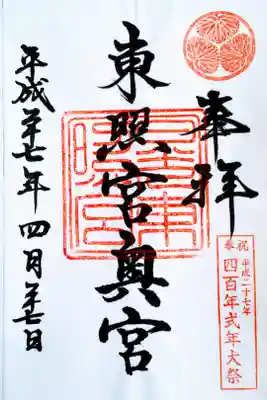 奉拝
東照宮奥宮
平成廿七年四月廿七日
奉祝
平成二十七年
四百年式年大祭